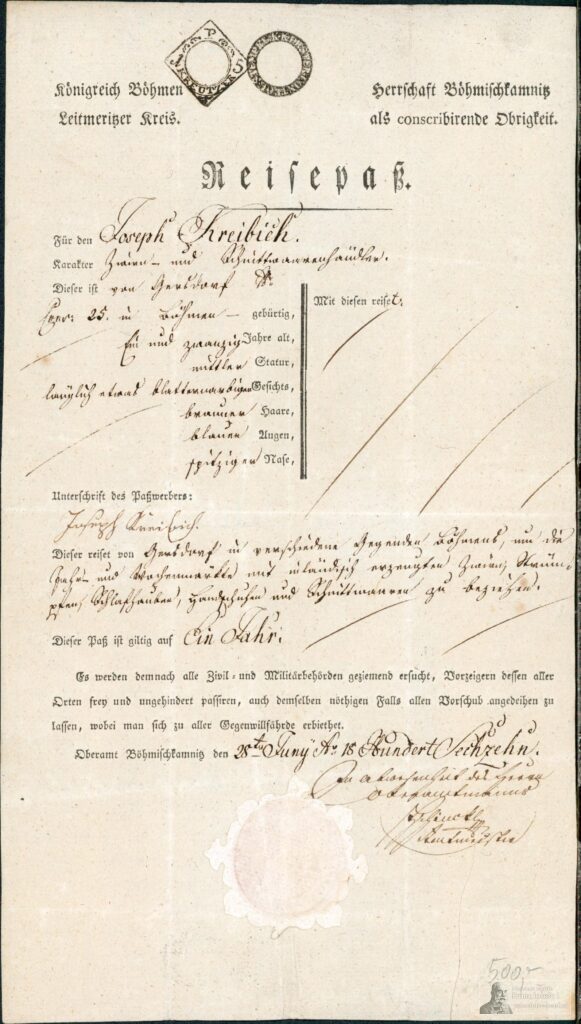 5 KREUTZER 5
Königreich Böhmen
Leitmeritzer Kreis.
Herrschaft Böhmischkamnitz
als conscribirende Obrigkeit.
Reisepaß.
Für den Joseph Kreibich.
Karakter Zwirn- und Schnittwaarenhändler.
Dieser ist von Gersdorf
25. in Böhmen — gebürtig,
Ein und zwanzig Jahre alt,
mittler Statur,
länglich etwas blatternarbigen Gesichts,
brauner Haare,
blauen Augen,
spitziger Nase,
Mit diesen reiset:
Unterschrift des Paßwerbers:
Joseph Kreibich.
Dieser reiset von Gersdorf in verschiedene Gegenden Böhmens, um die
Jahr- und Wochenmärkte mit inländisch erzeugten Zwirn, Strüm-
pfen, Schlafhauben, Handschuhen und Schnittwaaren zu beziehen.
Dieser Paß ist giltig auf Ein Jahr.
Es werden demnach alle Zivil- und Militärbehörden geziemend ersucht, Vorzeigern dessen aller
Orten frey und ungehindert passiren, auch demselben nöthigen Falls allen Vorschub angedeihen zu
lassen, wobei man sich zu aller Gegenwillfährde erbiethet.
Oberamt Böhmischkamnitz den 28ten Juny Ao 18 Hundert Sechzehn.
In Abwesenheit des Herrn
Oberamtmanns
500,-